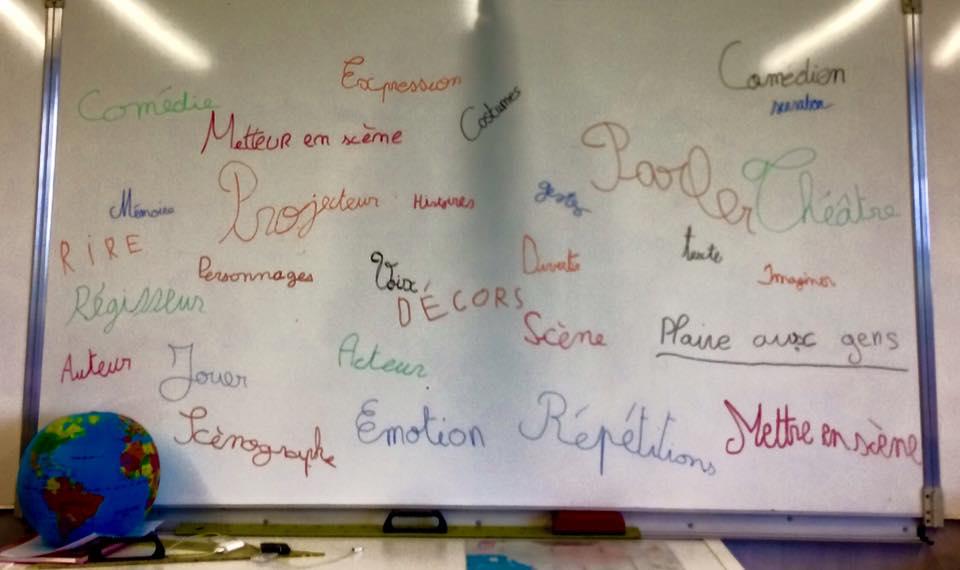 Expression
Comédien
Comédie
Costumes
narration
Metteur en scène
Parler
Théâtre
Mémoire
Projecteur
Histoires
gestes
RiRE
Personnages
Voix
texte
Imaginer
Régisseur
DÉCORS
Scène
Plaire aux gens
Auteur
Jouer
Acteur
Scènographe
Emotion
Répétitions
Mettre en scène